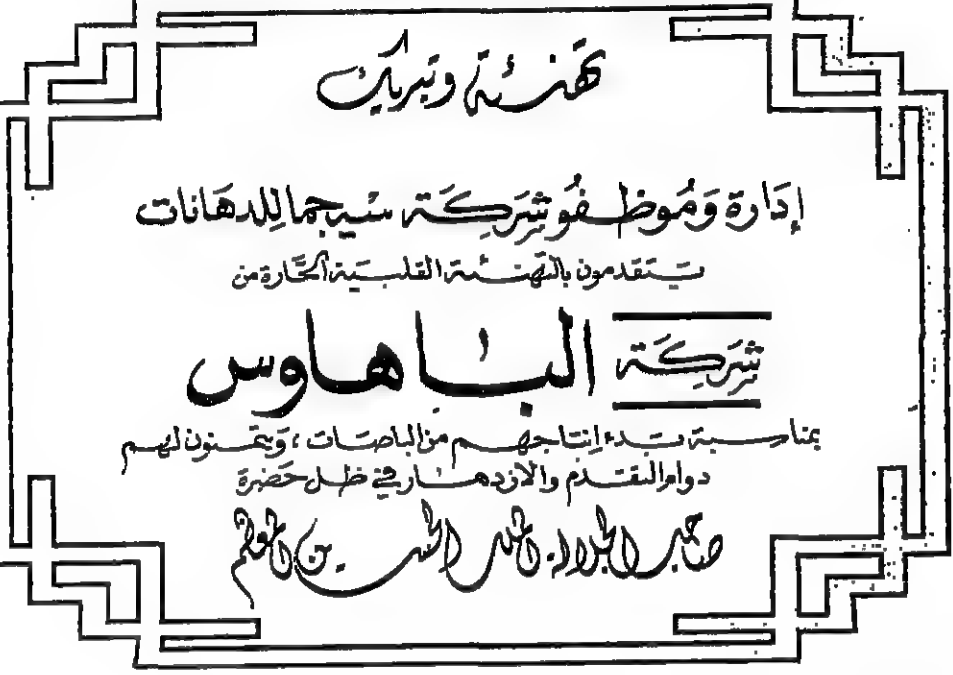 تهنئة وتبريك
إدارة وموظفو شركة سيجما للدهانات
يتقدمون بالتهنئة القلبية الحارة من
شركة الباهاوس
بمناسبة بدء إنتاجهم من الباصات ، ويتمنون لهم
دوام التقدم والازدهار في ظل حضرة
صاحب الجلالة الملك الحسين المعظم